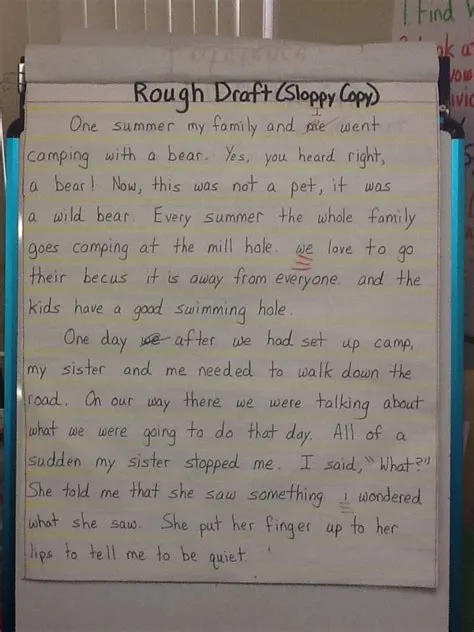 I Find
Rough Draft (Sloppy Copy)
I
One summer my family and me went
camping with a bear. Yes, you heard right,
a bear! Now, this was not a pet, it was
a wild bear. Every summer the whole family
goes camping at the mill hole. we love to go
their becus it is away from everyone. and the
kids have a good swimming hole.
One day we after we had set up camp,
my sister and me needed to walk down the
road. On our way there we were talking about
what we were going to do that day. All of a
sudden my sister stopped me. I said, "What?"
She told me that she saw something i wondered
what she saw. She put her finger up to her
lips to tell me to be quiet.